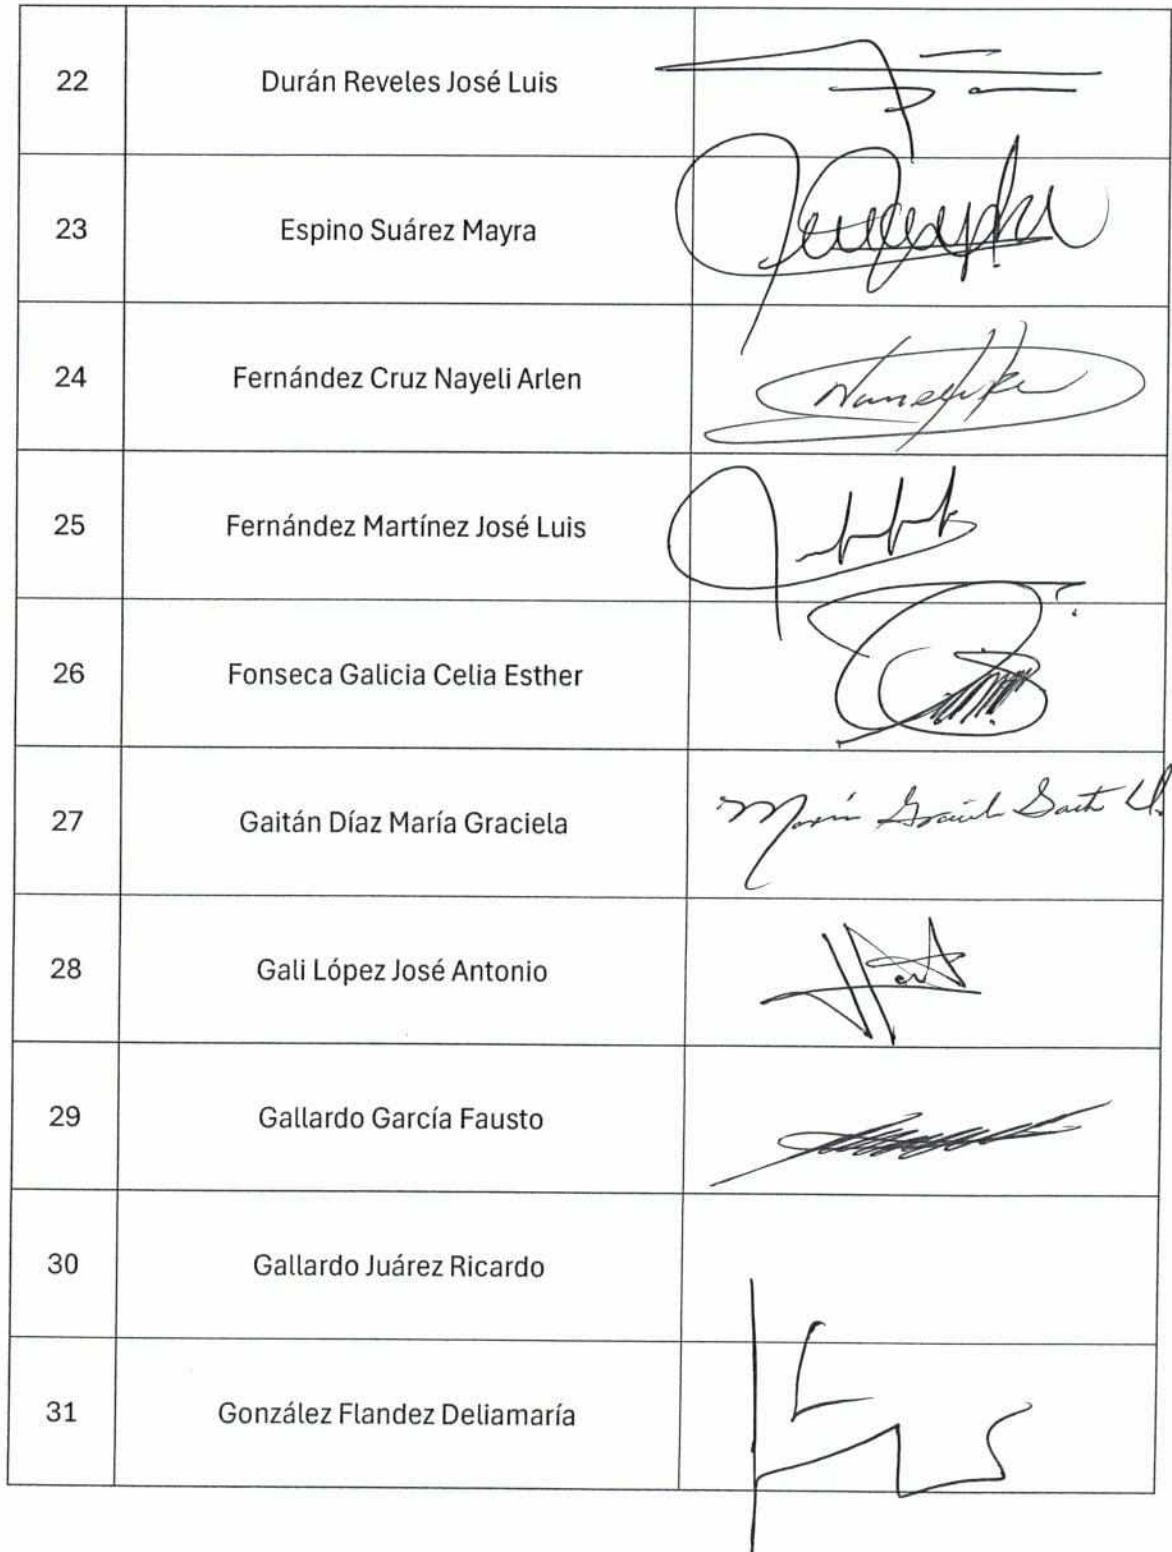 22 Durán Reveles José Luis
23 Espino Suárez Mayra
24 Fernández Cruz Nayeli Arlen
25 Fernández Martínez José Luis
26 Fonseca Galicia Celia Esther
27 Gaitán Díaz María Graciela
28 Gali López José Antonio
29 Gallardo García Fausto
30 Gallardo Juárez Ricardo
31 González Flandez Deliamaría